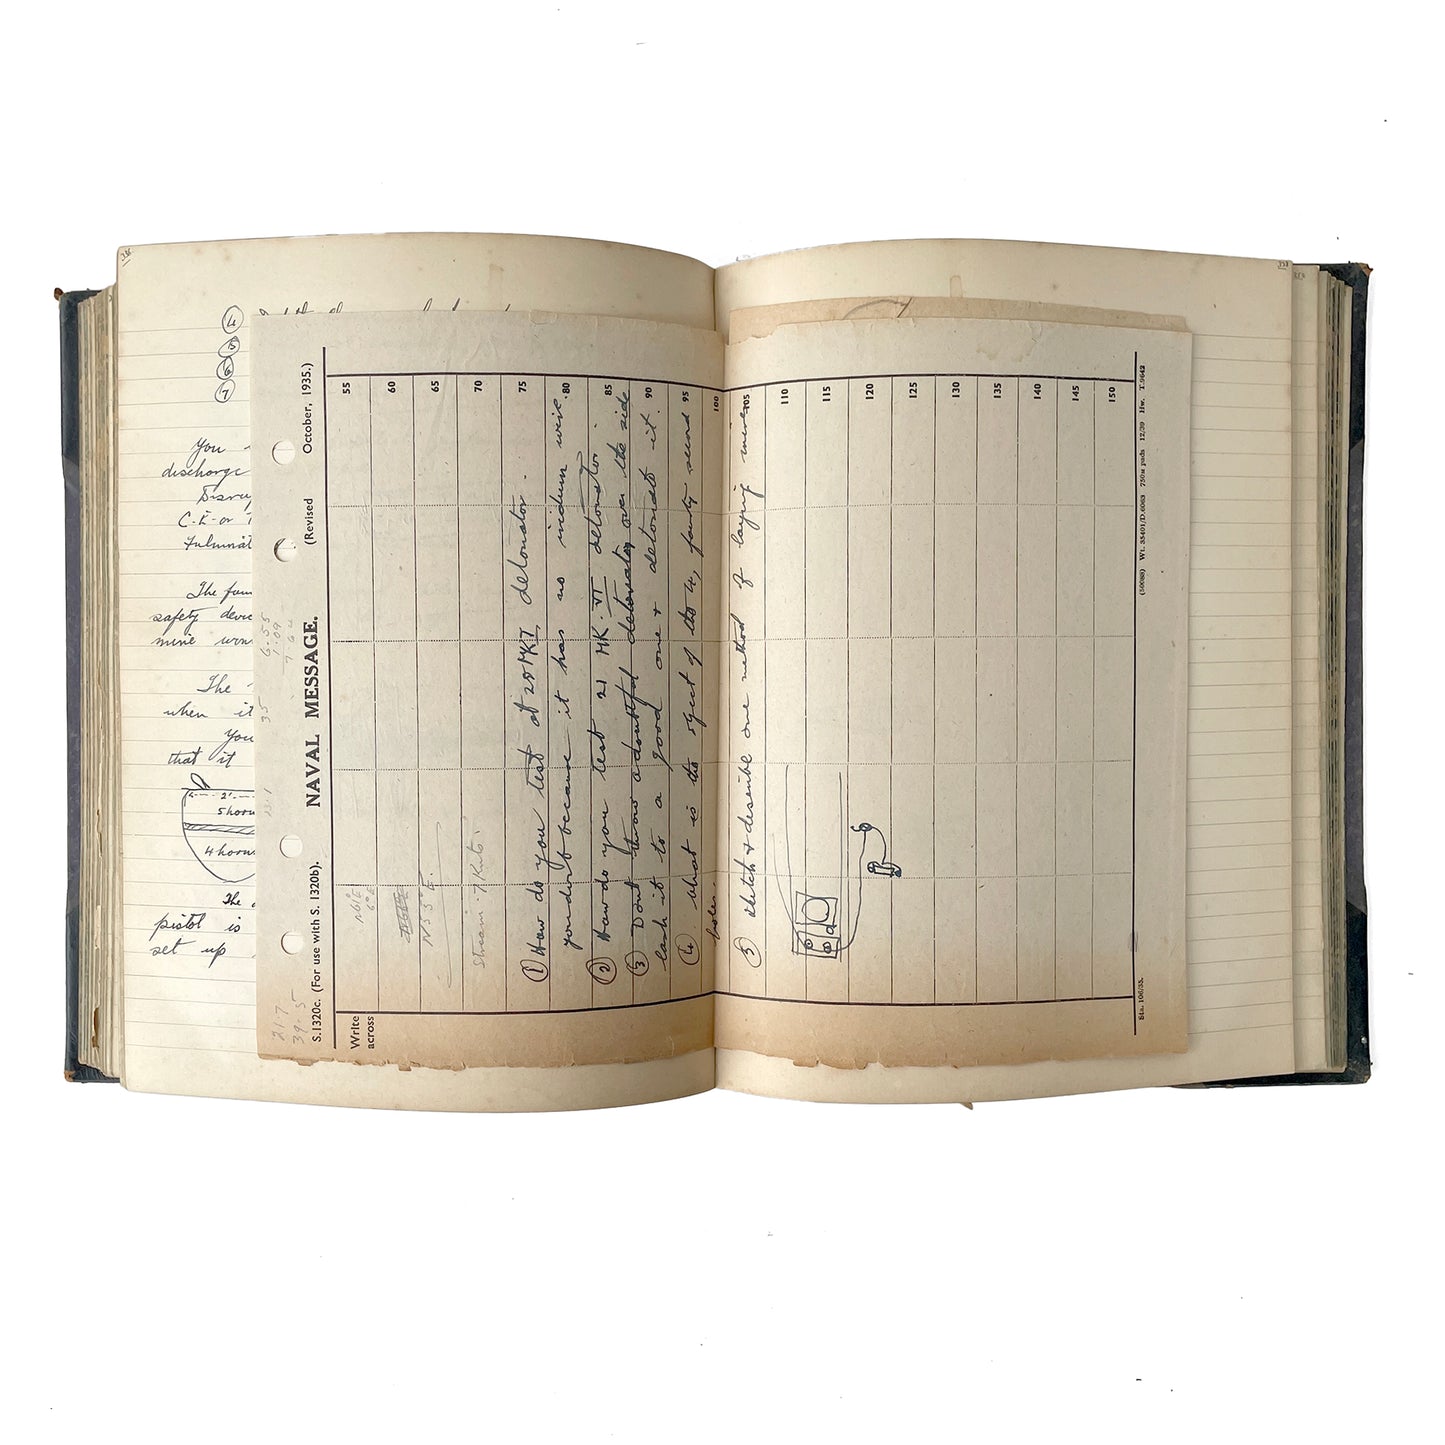 336
4
5
6
7
You
discharge
C.E. or
Fulminat
The
safety devi
mine
The
when it
You
that it
2'
5 horn
4 horn
The
pistol is
set up
S.1320c. (For use with S. 1320b).
NAVAL MESSAGE.
(Revised
October, 1935.)
21.7
39.5
3.5
6.55
1.09
7 64
Write
across
55
60
65
70
75
80
85
90
95
100
105
110
115
120
125
130
135
140
145
150
N55°E.
Stream. 7 Knts.
1 How do you test at 28 MKI detonator.
you don't because it has no iridium wire.
2 How do you test 21 MK. VI detonator.
3 Dont throw a doubtful detonator over the side
lash it to a good one + detonate it.
4 what is the object of the 4, forty second
holes.
5 sketch & describe one method of laying mines
Sta. 106/35.
(50088) Wt. 35401/D.6063 750M pads 12/39 Hw. T.9642
338